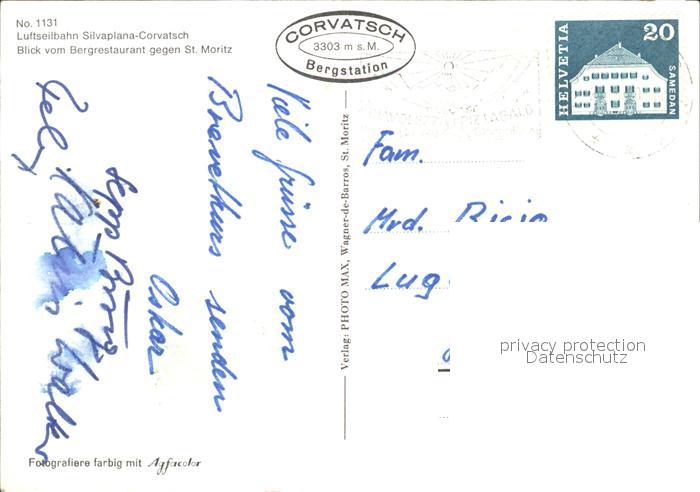 No. 1131
Luftseilbahn Silvaplana-Corvatsch
Blick vom Bergrestaurant gegen St. Moritz
CORVATSCH
3303 m s. M.
Bergstation
HELVETIA
20
SAMEDAN
Viele Grüsse vom
Brevetkurs senden
Oskar
Sepp
Walker
Verlag: PHOTO MAX, Wagner-de-Barros, St. Moritz
Fam.
Mrd.
Lug
privacy protection
Datenschutz
Fotografiere farbig mit Agfacolor